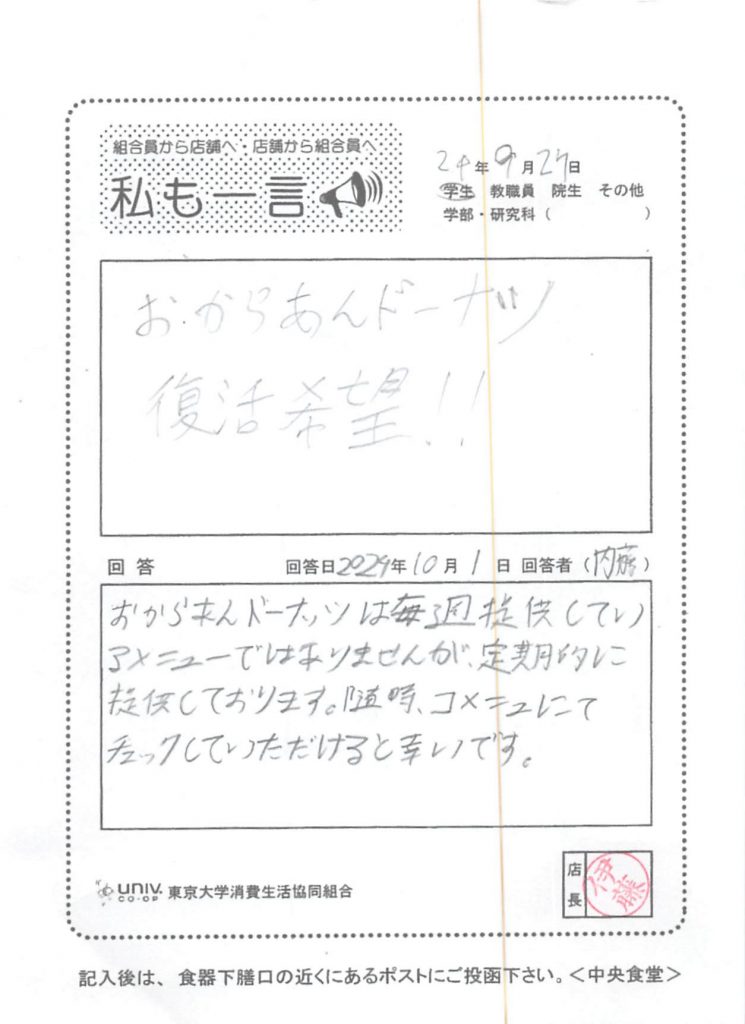 組合員から店舗へ・店舗から組合員へ
私も一言
24年9月27日
学生 教職員 院生 その他
学部・研究科（　　　　　）
おからあんドーナツ
復活希望!!
回答 回答日2024年10月1日 回答者（内藤）
おからあんドーナッツは毎週提供してい
るメニューではありませんが、定期的に
提供しております。随時、コメニュにて
チェックしていただけると幸いです。
univ. CO-OP 東京大学消費生活協同組合
店長 伊藤
記入後は、食器下膳口の近くにあるポストにご投函下さい。＜中央食堂＞